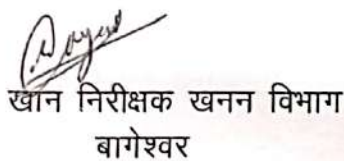 खान निरीक्षक खनन विभाग
बागेश्वर